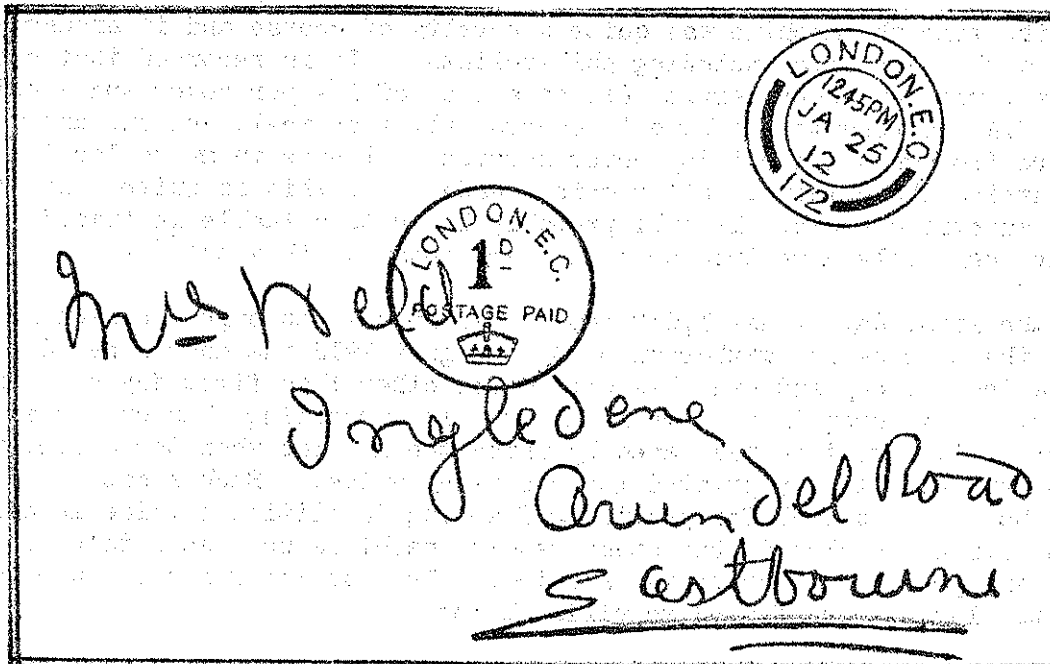 LONDON.E.C
1245PM
JA 25
12
172
LONDON.E.C.
1D
POSTAGE PAID
Mrs
Ingledene
Arundel Road
Eastbourne